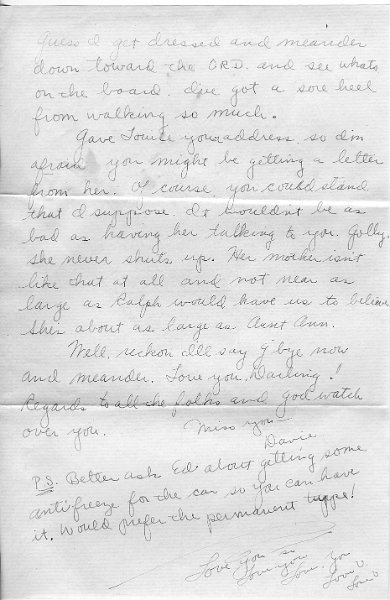 Guess I get dressed and meander
down toward the O.R.D. and see whats
on the board. I've got a sore heel
from walking so much.
Gave Louise your address so I'm
afraid you might be getting a letter
from her. Of course you could stand
that I suppose. It wouldn't be as
bad as having her talking to you. Golly,
she never shuts up. Her mother isn't
like that at all and not near as
large as Ralph would have us to believe
She's about as large as Aunt Ann.
Well, reckon I'll say g'bye now
and meander. Love you, Darling!
Regards to all the folks and god watch
over you.
Miss you—
Davie
P.S. Better ask Ed about getting some
antifreeze for the car so you can have
it. Would prefer the permanent type!
Love you
Love you
Love you
Love
Love